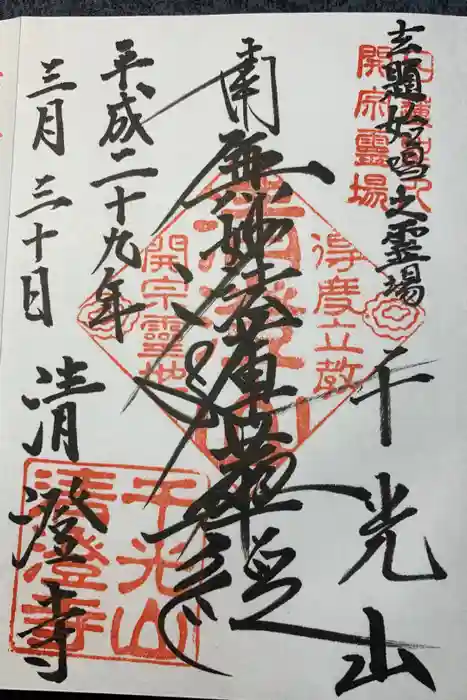 玄題始鳴之霊場
開宗靈場
千光山
得度立教
南無妙法蓮華経
開宗靈地
平成二十九年
三月三十日
清澄寺
千光山
清澄寺